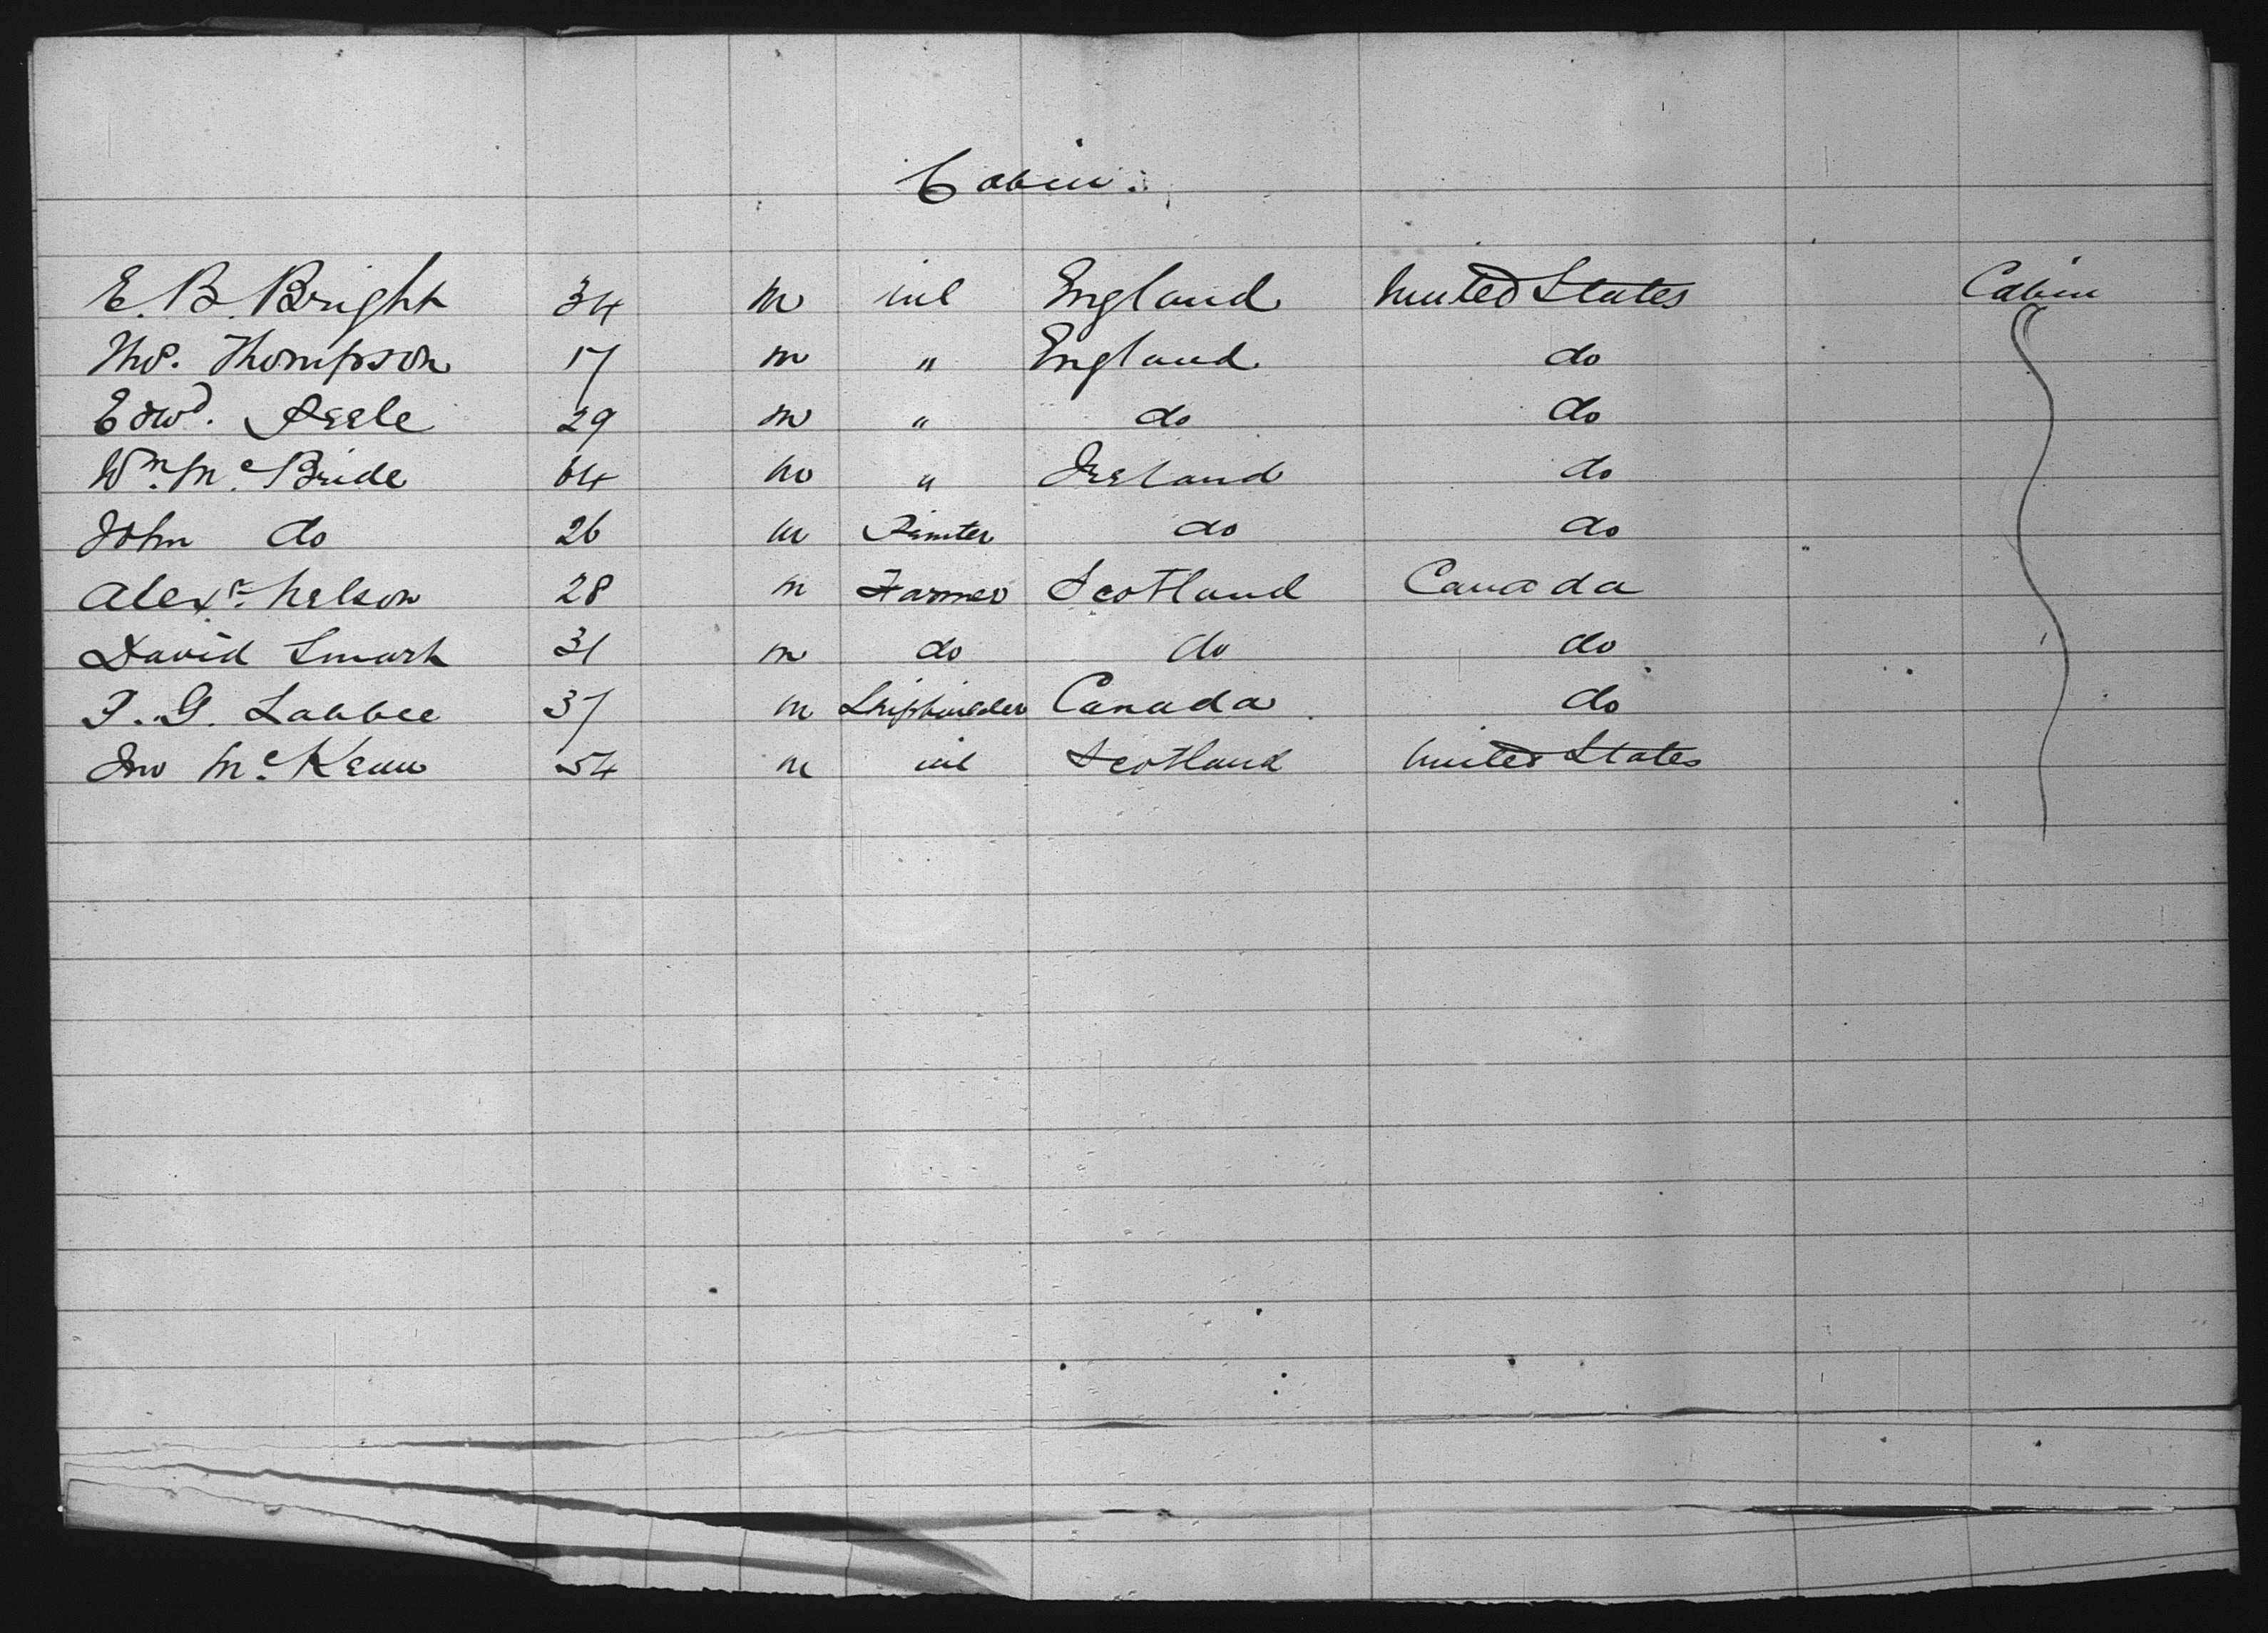 Cabin.
E. B. Bright 34 m nil England United States Cabin
Thos. Thompson 17 m " England do
Edwd. Peele 29 m " do do
Wm. Mc Bride 64 m " Ireland do
John do 26 m do do
Alexr. Nelson 28 m Farmer Scotland Canada
David Smart 31 m do do do
G. Labbee 37 m Shipbuilder Canada do
Jno Mc Kenn 54 m nil Scotland United States